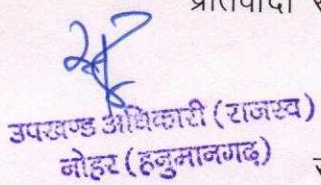 प्रतिवादी
उपखण्ड अधिकारी (राजस्व)
नोहर (हनुमानगढ़)